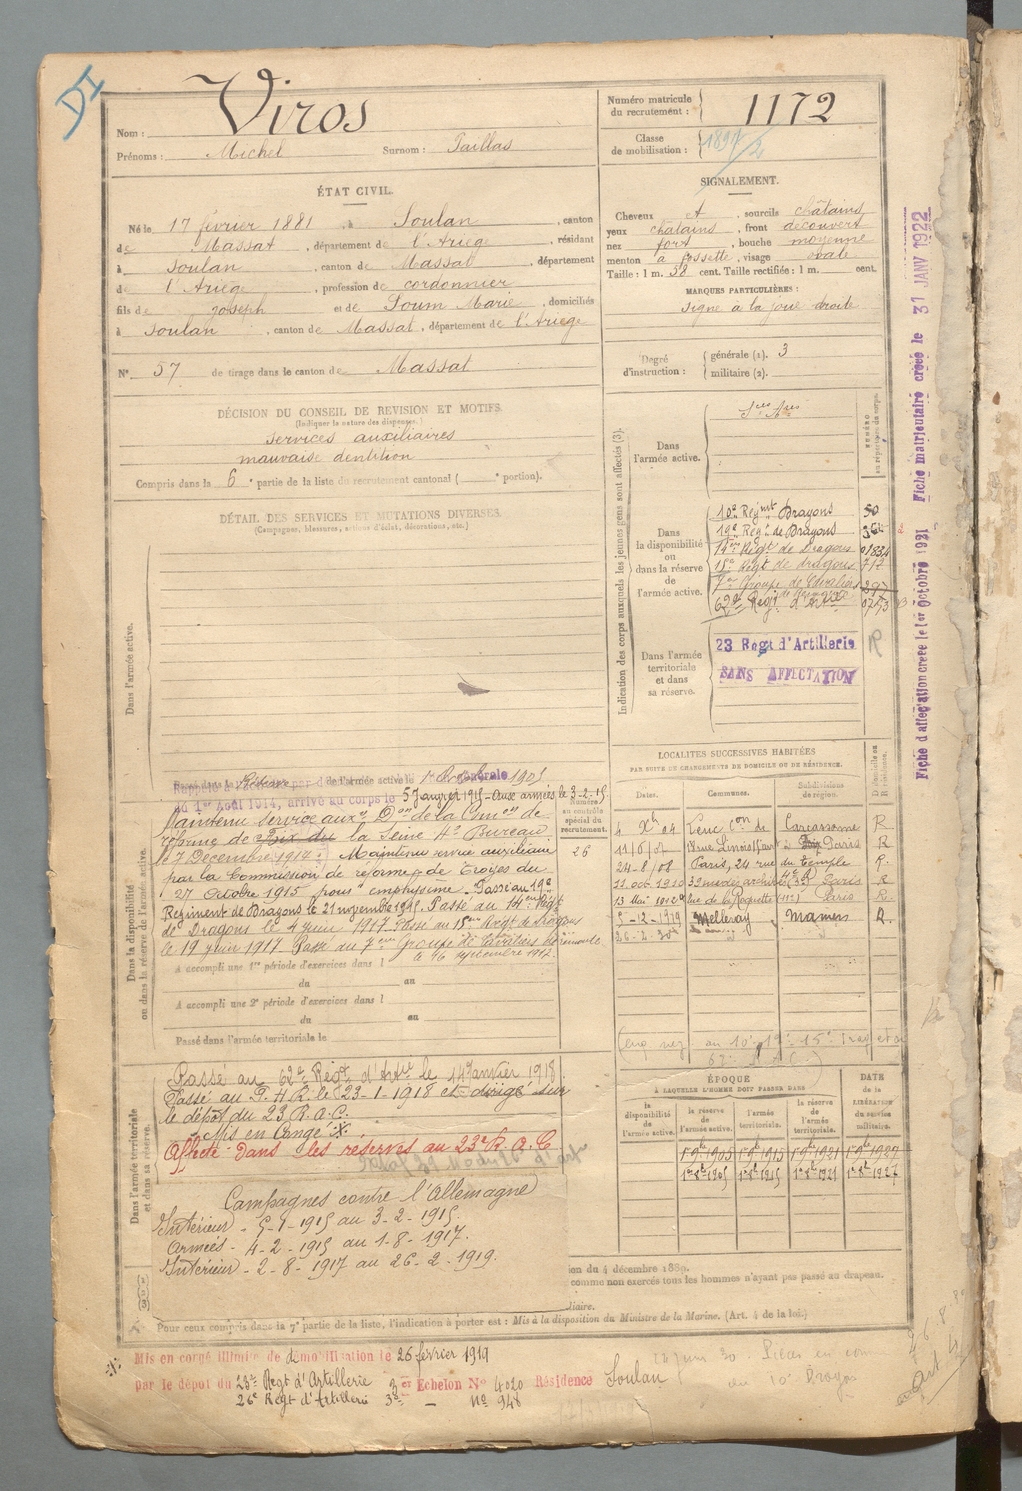 DI
Nom : Viros
Prénoms : Michel Surnom : Paillas
Numéro matricule du recrutement : 1172
Classe de mobilisation :
ÉTAT CIVIL.
Né le 17 février 1881, à Soulan, canton
de Massat, département de l'Ariège, résidant
à Soulan, canton de Massat, département
de l'Ariège, profession de cordonnier
fils de Joseph et de Soum Marie, domiciliés
à Soulan, canton de Massat, département de l'Ariège
N° 57 de tirage dans le canton de Massat
SIGNALEMENT.
Cheveux et, sourcils châtains
yeux châtains, front découvert
nez fort, bouche moyenne
menton à fossette, visage ovale
Taille : 1 m. 58 cent. Taille rectifiée : 1 m. cent.
MARQUES PARTICULIÈRES :
signe à la joue droite
Degré d'instruction : générale (1). 3
militaire (2).
DÉCISION DU CONSEIL DE REVISION ET MOTIFS.
(Indiquer la nature des dispenses.)
services auxiliaires
mauvaise dentition
Compris dans la 6e partie de la liste du recrutement cantonal ( e portion).
DÉTAIL DES SERVICES ET MUTATIONS DIVERSES.
(Campagnes, blessures, actions d'éclat, décorations, etc.)
Dans l'armée active.
Indication des corps auxquels les jeunes gens sont affectés (3).
NUMÉRO au répertoire du corps.
Dans l'armée active.
Sces Ares
Dans la disponibilité ou dans la réserve de l'armée active.
10e Regimt Dragons 50
19e Regt de Dragons
14eme Regt de Dragons 01834
15e Regt de dragons 717
7eme Groupe de Cavaliers 297
62e Regt d'Artie
Dans l'armée territoriale et dans sa réserve.
23 Regt d'Artillerie R
SANS AFFECTATION
Fiche d'affectation créée le 1er Octobre 1921 Fiche matriculaire créée le 31 JANV 1922
Dans la disponibilité ou dans la réserve de l'armée active.
de l'armée active le 1er Octobre 1905
du 1er Août 1914, arrivé au corps le 5 Janvier 1915 - Aux armées le 3-2-15
Maintenu service auxre Don de la Cmon de
réforme de la Seine 4e Bureau
le 7 Décembre 1914. Maintenu service auxiliaire
par la Commission de réforme de Troyes du
27 Octobre 1915 pour emphysème - Passé au 19e
Regiment de Dragons le 21 novembre 1915. Passé au 14eme Regt
de Dragons le 4 juin 1917. Passé au 15eme Regt de dragons
le 19 juin 1917. Passé au 7eme Groupe de Cavaliers de remonte
le 16 septembre 1917.
Numéro au contrôle spécial du recrutement.
26
A accompli une 1re période d'exercices dans l
du au
A accompli une 2e période d'exercices dans l
du au
Passé dans l'armée territoriale le
LOCALITÉS SUCCESSIVES HABITÉES
PAR SUITE DE CHANGEMENTS DE DOMICILE OU DE RÉSIDENCE.
Dates. Communes. Subdivisions de région. Domicile ou Résidence.
4 Xbre 04 Leuc con de Carcassonne R
Paris R
24-8/08 Paris, 24 rue du temple R.
11 oct. 1910 39 rue des archives (3e) Paris R
13 Mai 1912 rue de la Roquette (11e) Paris R.
5-12-1919 Melleray Mamers R.
26-2-30
Dans l'armée territoriale et dans sa réserve.
Passé au 62e Régt d'Artie le 14 Janvier 1918.
Passé au P.H.R. le 23-1-1918 et dirigé sur
le dépôt du 23 R.A.C.
Mis en Congé ※
Affecté dans les réserves au 23e R.A.C
Campagnes contre l'Allemagne
Intérieur - 5-1-1915 au 3-2-1915.
Armées - 4-2-1915 au 1-8-1917.
Intérieur - 2-8-1917 au 26-2-1919.
ÉPOQUE
À LAQUELLE L'HOMME DOIT PASSER DANS
la disponibilité de l'armée active. la réserve de l'armée active. l'armée territoriale. la réserve de l'armée territoriale.
DATE de la LIBÉRATION du service militaire.
1er 9bre 1905 1er 9bre 1915 1er 9bre 1921 1er 9bre 1927
1er 8bre 1905 1er 8bre 1915 1er 8bre 1921 1er 8bre 1927
ion du 4 décembre 1889.
comme non exercés tous les hommes n'ayant pas passé au drapeau.
liaire.
Pour ceux compris dans la 7e partie de la liste, l'indication à porter est : Mis à la disposition du Ministre de la Marine. (Art. 4 de la loi.)
※ Mis en congé illimité de démobilisation le 26 février 1919
par le dépôt du 23e Regt d'Artillerie 3er Echelon No 4020 Résidence Soulan
26e Regt d'Artillerie 3e - No 948